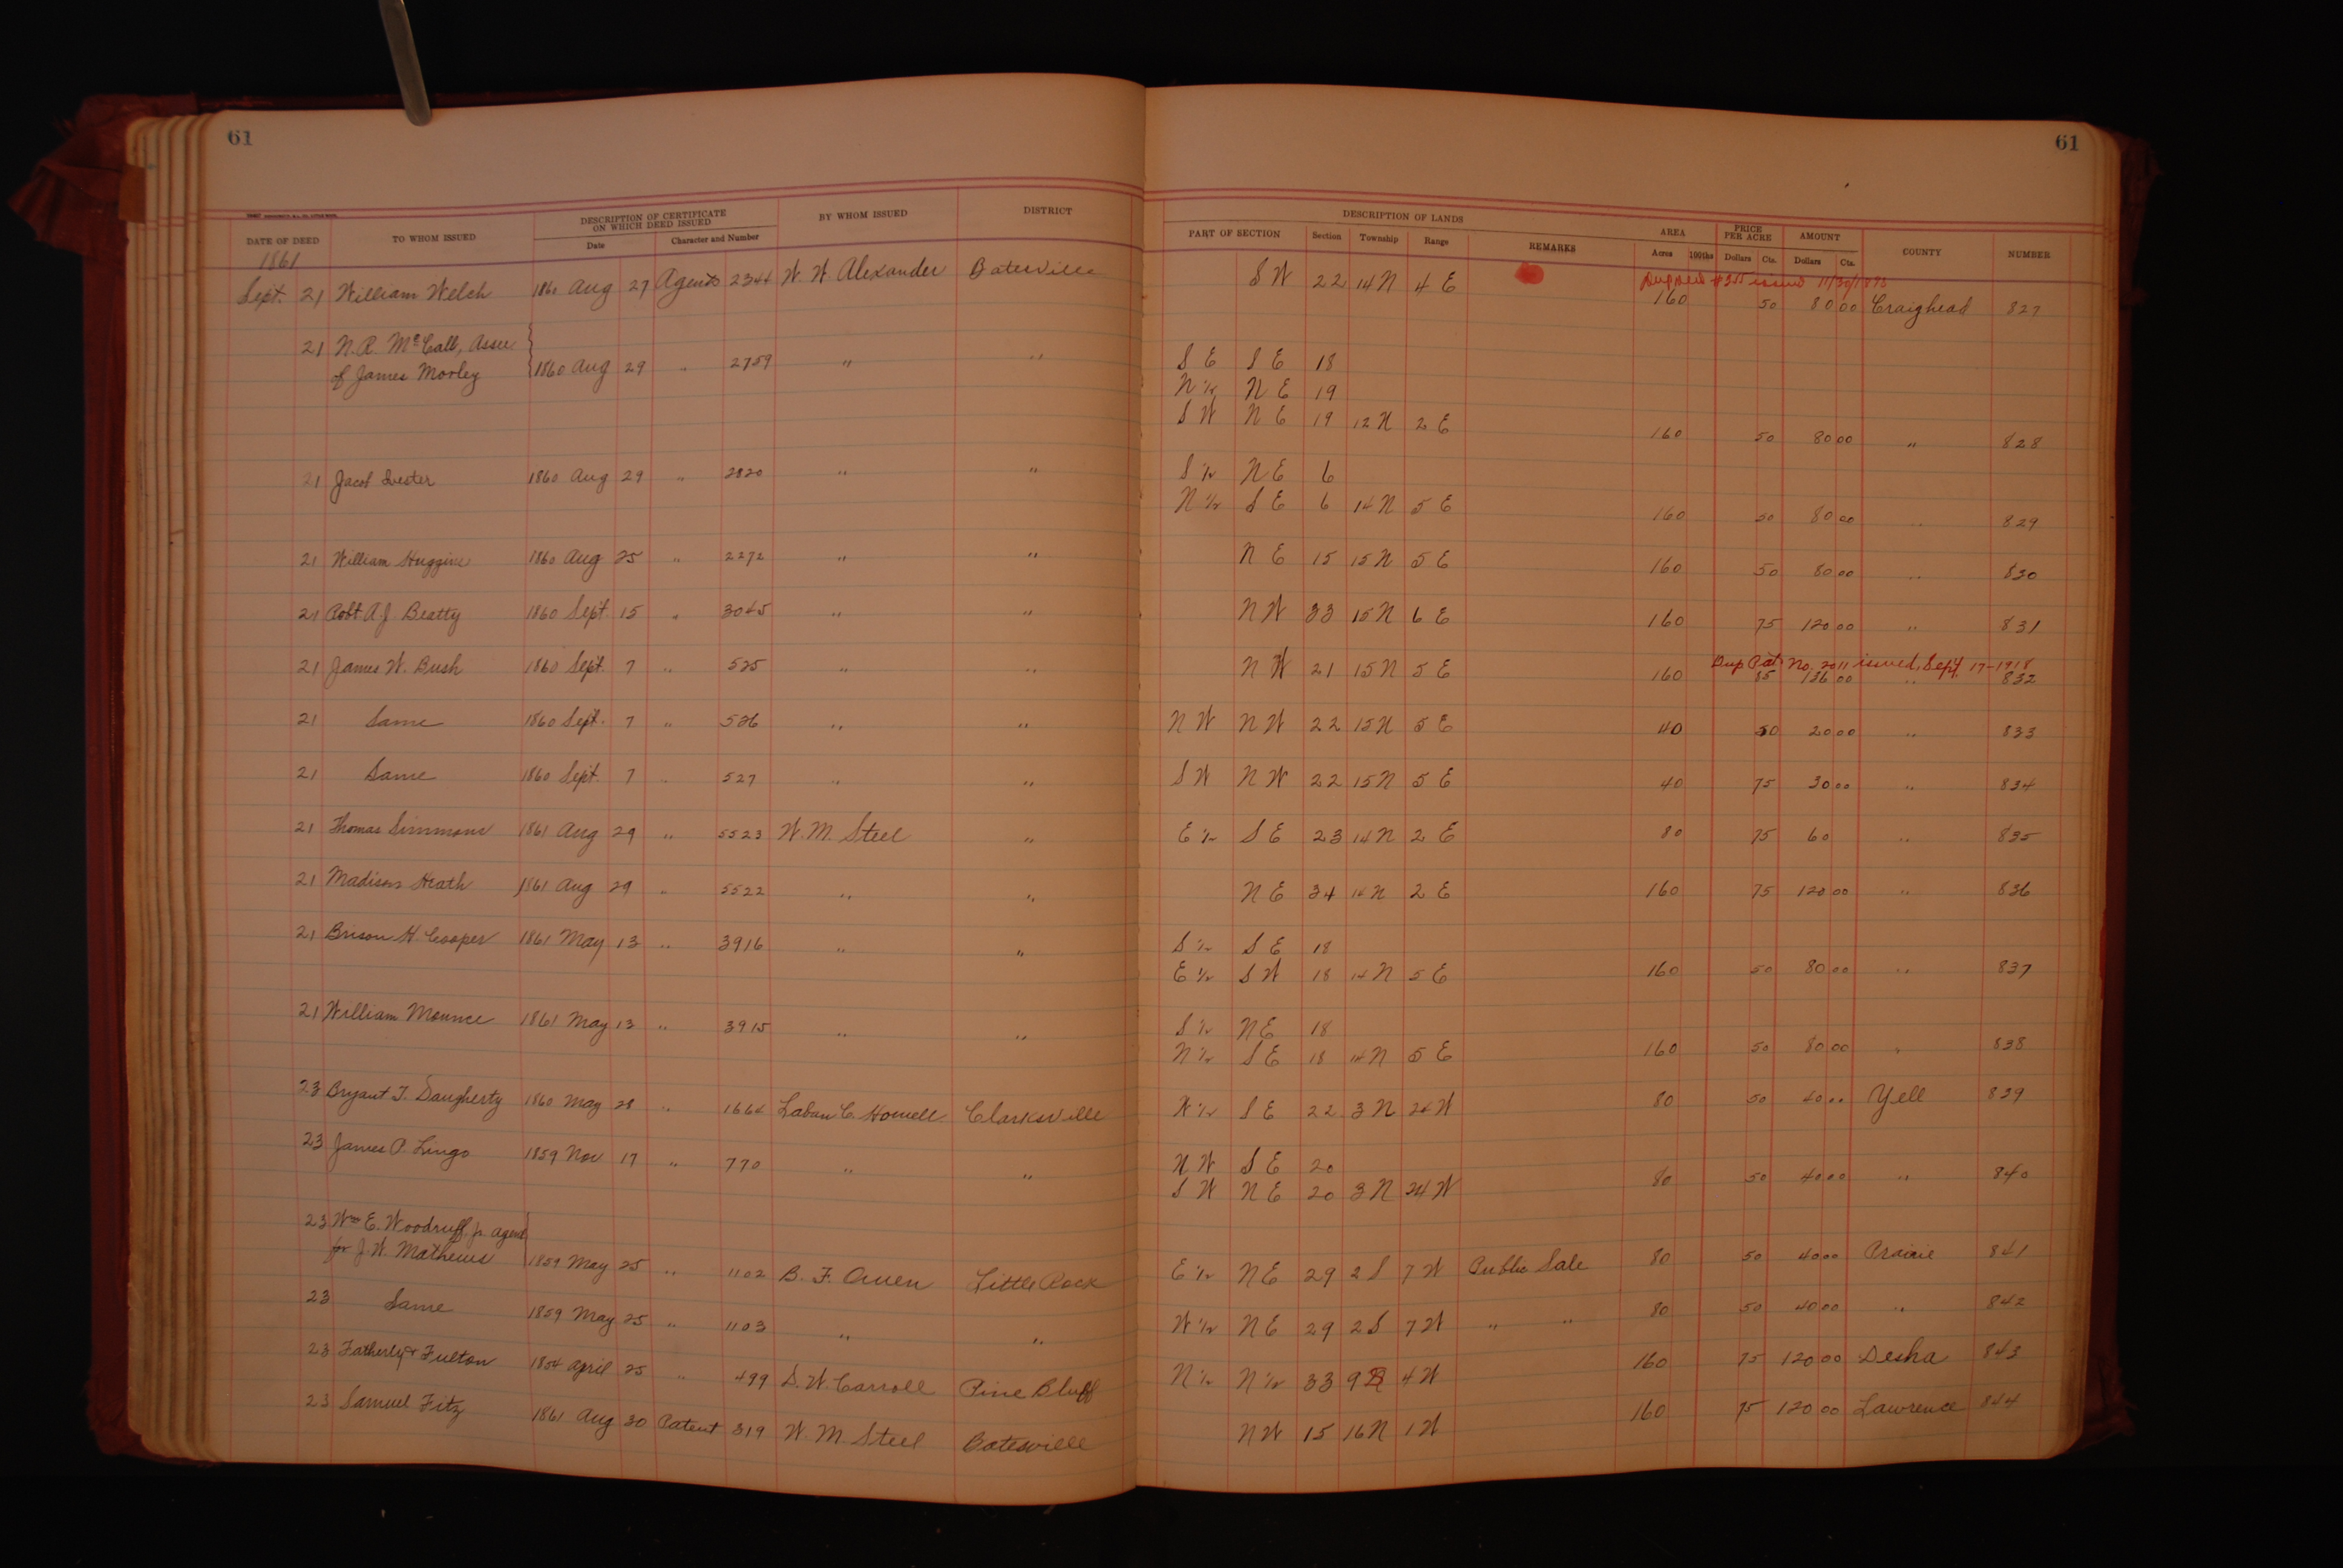 61
61
DATE OF DEED TO WHOM ISSUED DESCRIPTION OF CERTIFICATE ON WHICH DEED ISSUED Date Character and Number BY WHOM ISSUED DISTRICT DESCRIPTION OF LANDS PART OF SECTION Section Township Range REMARKS AREA Acres 100ths PRICE PER ACRE Dollars Cts. AMOUNT Dollars Cts. COUNTY NUMBER
1861
issued 11/30/1893
Sept. 21 William Welch 1860 Aug 27 Agents 2344 W. W. Alexander Batesville S W 22 14 N 4 E 160 50 80 00 Craighead 827
21 N. R. McCall, Assee
of James Morley 1860 Aug 29 " 2759 " " S E S E 18
N ½ N E 19
S W N E 19 12 N 2 E 160 50 80 00 " 828
21 Jacob Lester 1860 Aug 29 " 2820 " " S ½ N E 6
N ½ S E 6 14 N 5 E 160 50 80 00 " 829
21 William Huggins 1860 Aug 25 " 2272 " " N E 15 15 N 5 E 160 50 80 00 " 830
21 Robt. A. J. Beatty 1860 Sept. 15 " 3045 " " N W 33 15 N 6 E 160 75 120 00 " 831
Dup Pat. No. 2011 issued, Sept. 17-1918
21 James W. Bush 1860 Sept. 7 " 525 " " N W 21 15 N 5 E 160 85 136 00 " 832
21 Same 1860 Sept. 7 " 526 " " N W N W 22 15 N 5 E 40 50 20 00 " 833
21 Same 1860 Sept. 7 " 527 " " S W N W 22 15 N 5 E 40 75 30 00 " 834
21 Thomas Simmons 1861 Aug 29 " 5523 W. M. Steel " E ½ S E 23 14 N 2 E 80 75 60 " 835
21 Madison Heath 1861 Aug 29 " 5522 " " N E 34 14 N 2 E 160 75 120 00 " 836
21 Brison H. Cooper 1861 May 13 " 3916 " " S ½ S E 18
E ½ S W 18 14 N 5 E 160 50 80 00 " 837
21 William Mounce 1861 May 13 " 3915 " " S ½ N E 18
N ½ S E 18 14 N 5 E 160 50 80 00 " 838
23 Bryant T. Daugherty 1860 May 28 " 1664 Laban C. Howell Clarksville W ½ S E 22 3 N 24 W 80 50 40 00 Yell 839
23 James P. Lingo 1859 Nov 17 " 770 " " N W S E 20
S W N E 20 3 N 24 W 80 50 40 00 " 840
23 Wm E. Woodruff jr. agent
for J. W. Mathews 1859 May 25 " 1102 B. F. Owen Little Rock E ½ N E 29 2 S 7 W Public Sale 80 50 40 00 Prairie 841
23 Same 1859 May 25 " 1103 " " W ½ N E 29 2 S 7 W " " 80 50 40 00 " 842
23 Fatherly & Fulton 1854 April 25 " 499 D. W. Carroll Pine Bluff N ½ N ½ 33 9 4 W 160 75 120 00 Desha 843
23 Samuel Fitz 1861 Aug 30 Patent 319 W. M. Steel Batesville N W 15 16 N 1 W 160 75 120 00 Lawrence 844